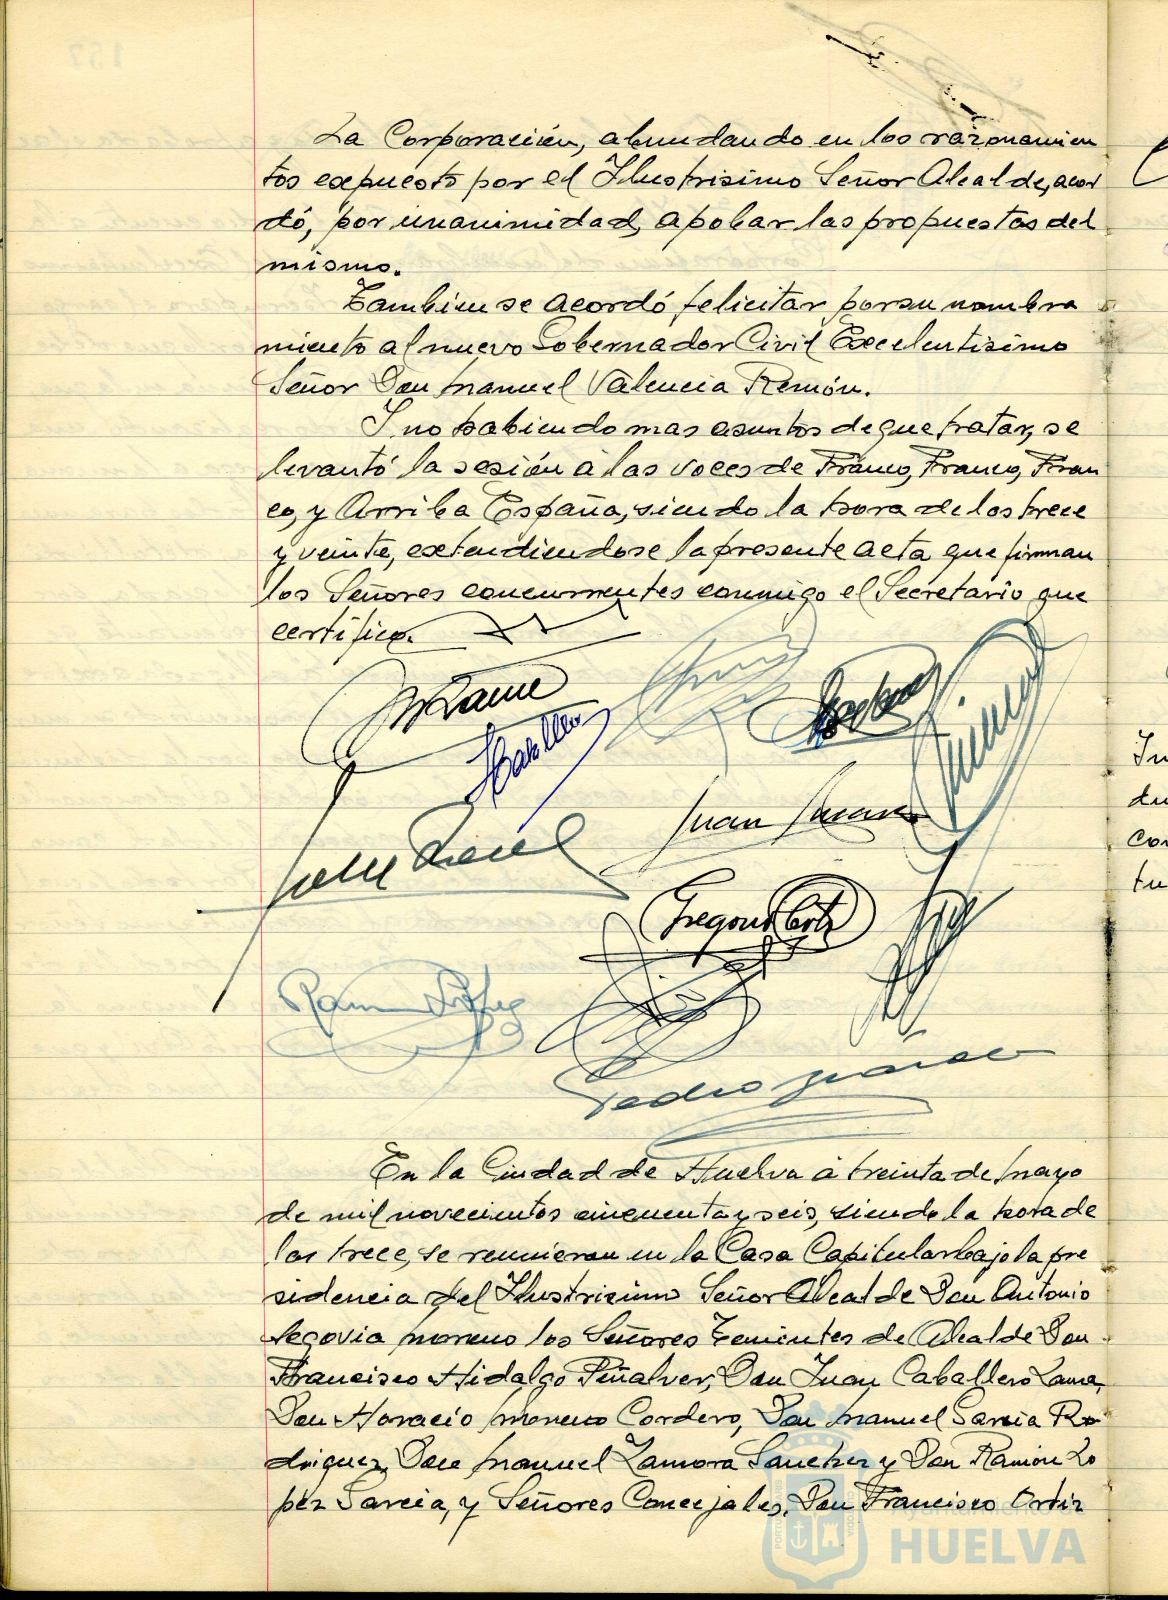 La Corporación, abundando en los razonamien
tos expuesto por el Ilustrisimo Señor Alcalde, acor
dó, por unanimidad, apobar las propuestas del
mismo.
Tambien se acordó felicitar por su nombra
miento al nuevo Gobernador Civil Excelentisimo
Señor Don Manuel Valencia Remón.
Y no habiendo mas asuntos de que tratar, se
levantó la sesión a las voces de Franco, Franco, Fran
co, y Arriba España, siendo la hora de los trece
y veinte, extendiendose la presente acta que firman
los Señores concurrentes conmigo el Secretario que
certifico.
Juan
Gregorio
Ramon Lopez
Pedro
En la Ciudad de Huelva a treinta de Mayo
de mil novecientos cincuenta y seis, siendo la hora de
las trece, se reunieron en la Casa Capitular bajo la pre
sidencia del Ilustrisimo Señor Alcalde Don Antonio
Segovia Moreno los Señores Tenientes de Alcalde Don
Francisco Hidalgo Peñalver, Don Juan Caballero Lama,
Don Horacio Moreno Cordero, Don Manuel Garcia Ro
driguez, Don Manuel Zamora Sanchez y Don Ramón Lo
pez Garcia, y Señores Concejales, Don Francisco Ortiz
Ayuntamiento de
HUELVA